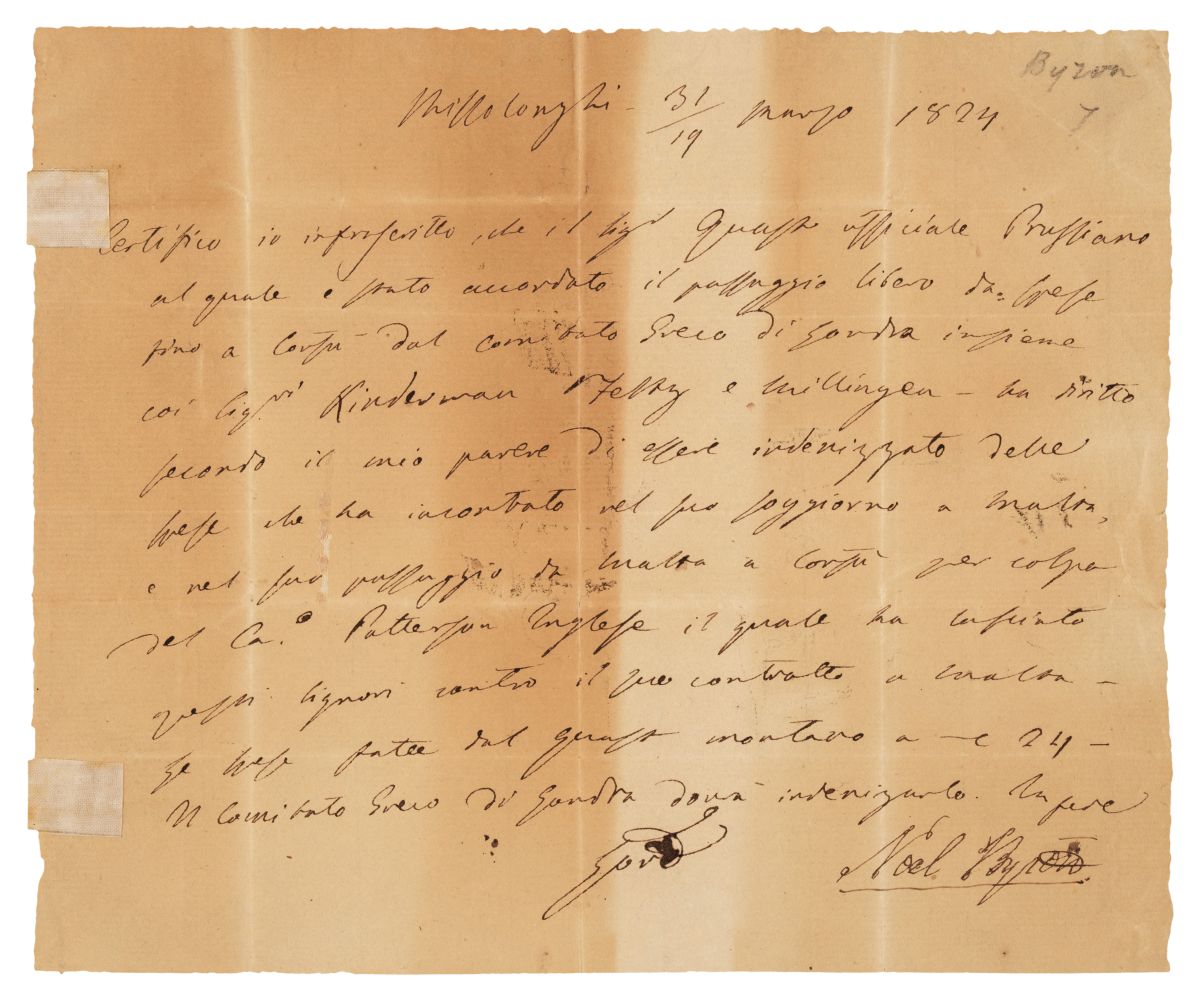 Byron
7
Missolonghi - 31/19 Marzo 1824
Certifico io infrascritto, che il Sigr Quass ufficiale Prussiano
al quale e stato accordato il passaggio libero da spese
fino a Corfu dal comitato Greco di Londra insieme
coi Sigri Kinderman e Millingen - ha diritto
secondo il mio parere di essere indenizzato delle
spese che ha incontrato nel suo soggiorno a Malta,
e nel suo passaggio da Malta a Corfu per colpa
del Cao Patterson Inglese il quale ha lasciato
questi Signori contro il suo contratto a Malta -
Le spese fatte dal Quass montano a 24 -
Il Comitato Greco di Londra dovrà indenizarlo. In fede
Noel Byron